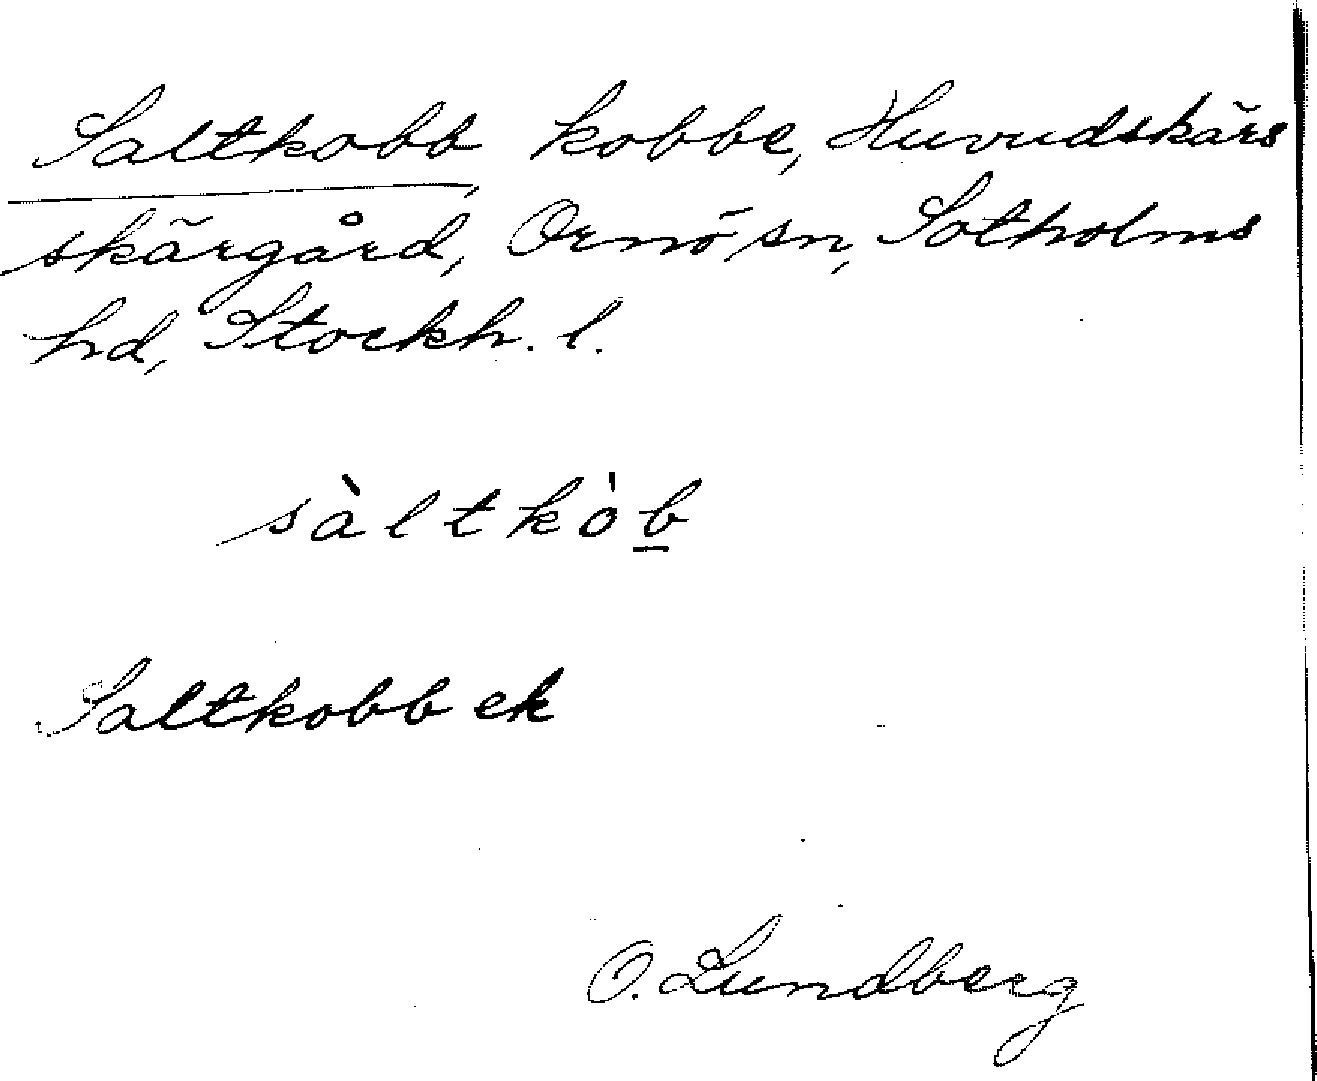 Saltkobb, kobbe, Huvudskärs
skärgård, Ornö sn, Sotholms
hd, Stockh. l.
sàltkòb̲
Saltkobb ek
O. Lundberg